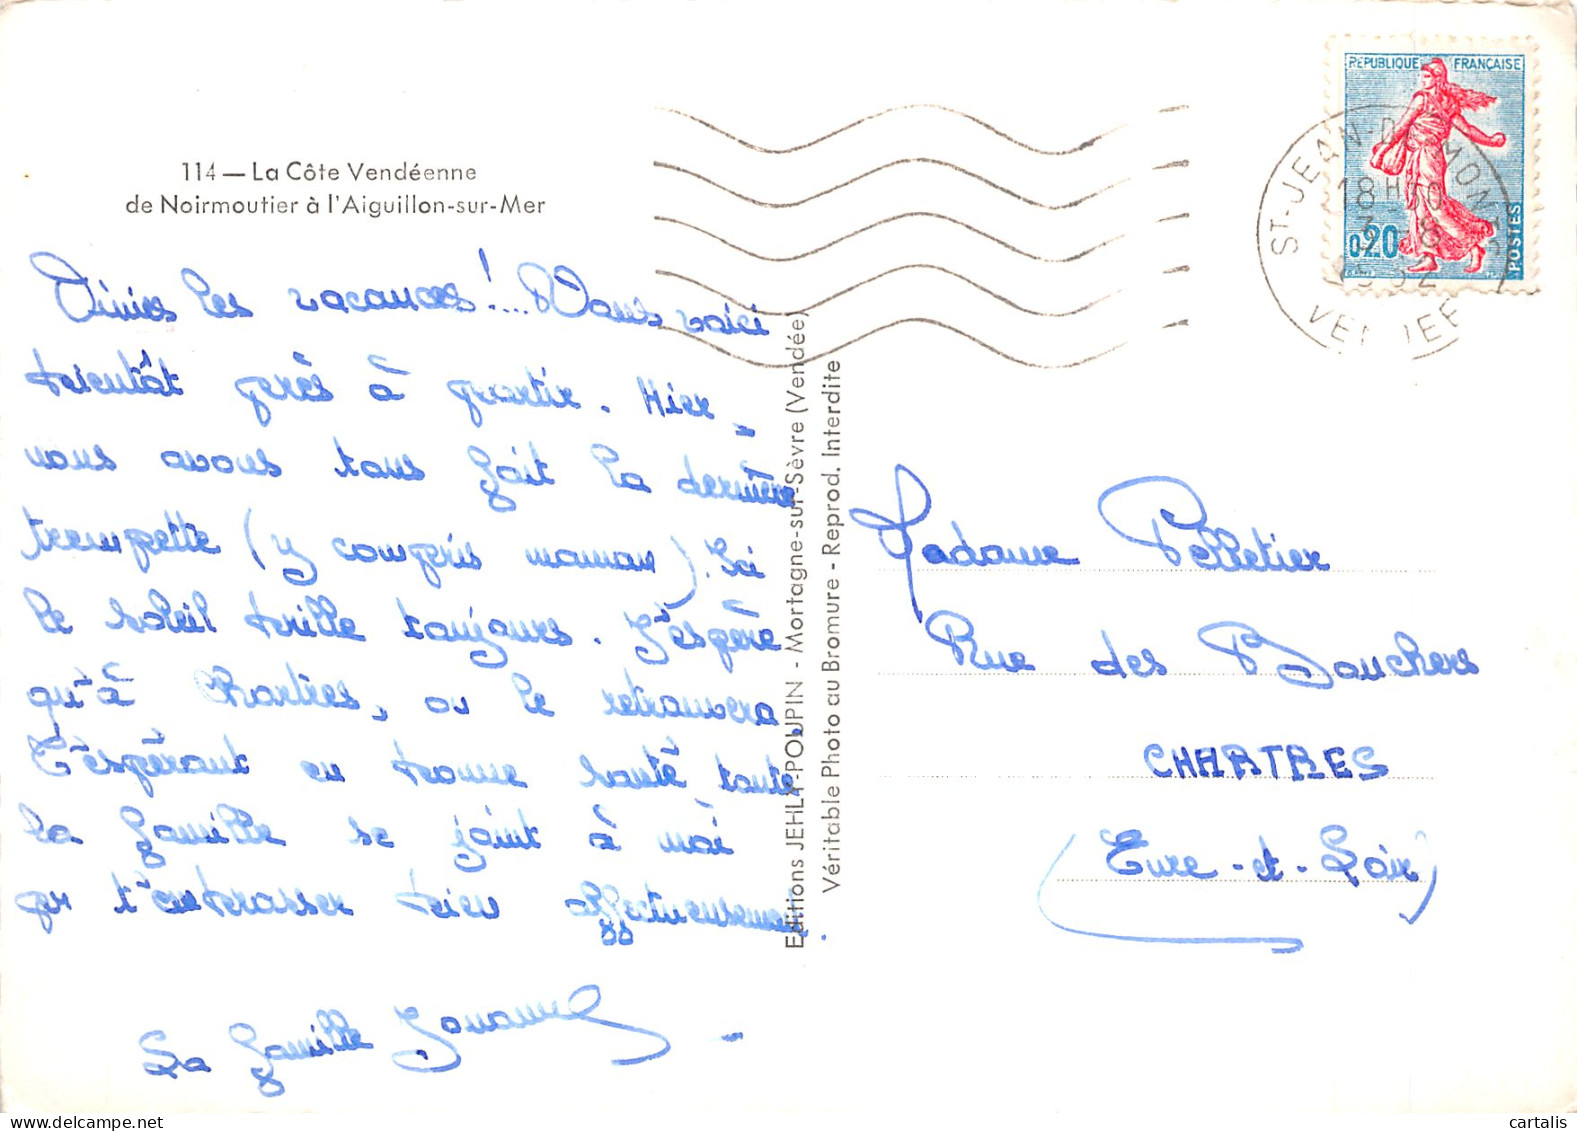 114 — La Côte Vendéenne
de Noirmoutier à l'Aiguillon-sur-Mer
Finies les vacances !... Nous voici
bientôt près à partir. Hier
nous avons tous fait la dernière
trempette (y compris maman). Ici
le soleil brille toujours. J'espère
qu'à Chartres, on le retrouvera.
T'espérant en bonne santé toute
la famille se joint à moi
pr t'embrasser bien affectueusement.
La famille
Editions JEHLY-POUPIN - Mortagne-sur-Sèvre (Vendée)
Véritable Photo au Bromure - Reprod. Interdite
RÉPUBLIQUE FRANÇAISE
0,20
POSTES
ST-JEAN-DE-MONTS
18 H 30
3 - 8
1962
VENDEE
Madame Pelletier
Rue des Bouchers
CHARTRES
(Eure-et-Loir)
www.delcampe.net
cartalis